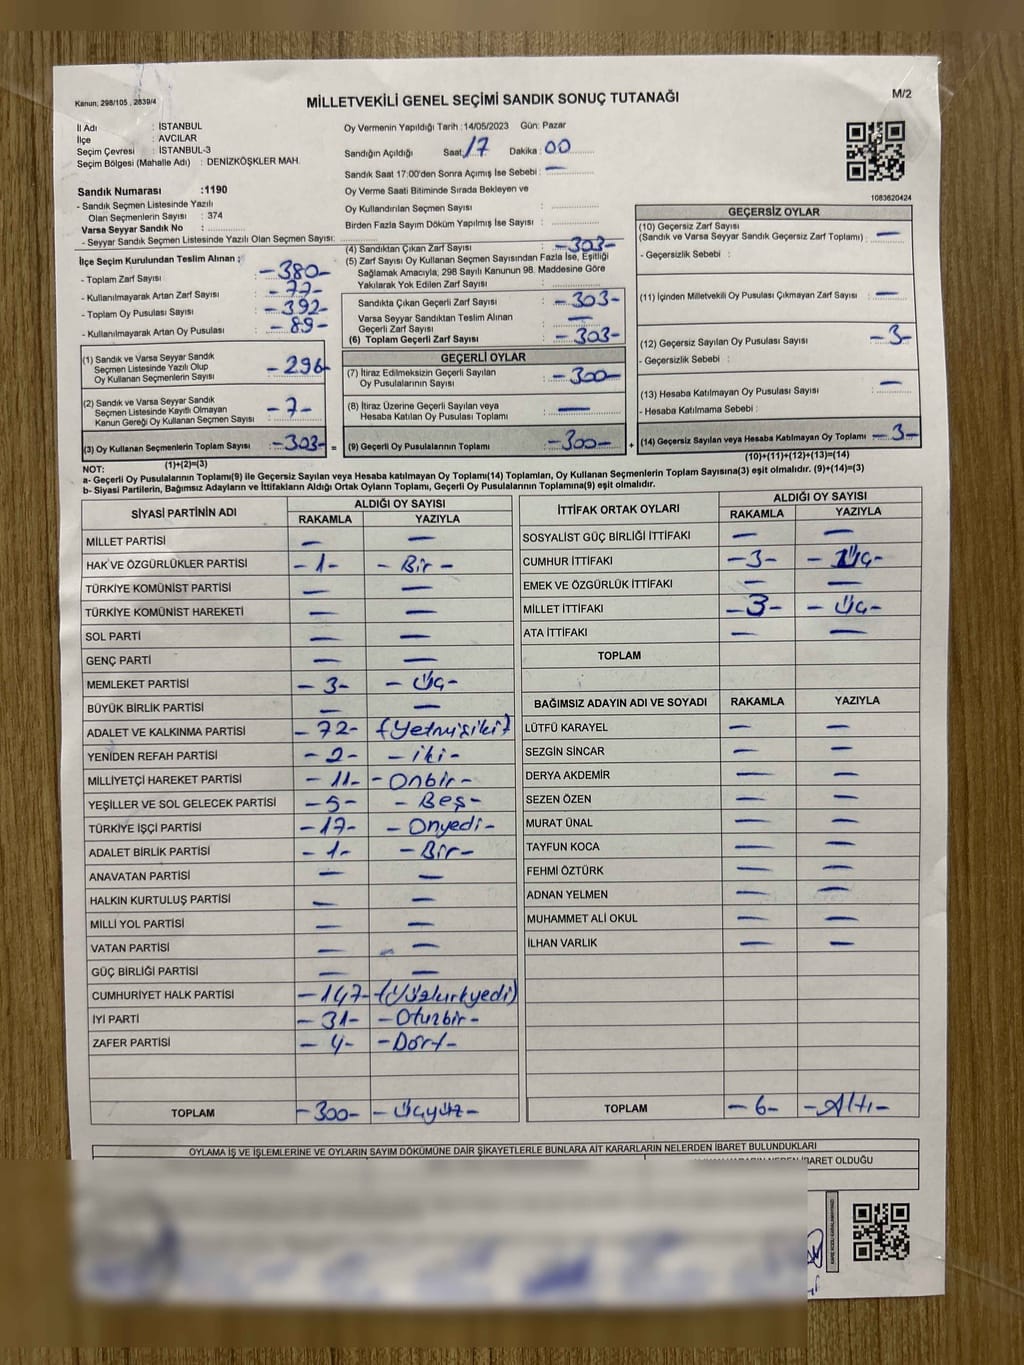 Kanun; 298/105 , 2839/4
MİLLETVEKİLİ GENEL SEÇİMİ SANDIK SONUÇ TUTANAĞI
M/2
İl Adı : İSTANBUL
İlçe : AVCILAR
Seçim Çevresi : İSTANBUL-3
Seçim Bölgesi (Mahalle Adı) : DENİZKÖŞKLER MAH.
Sandık Numarası :1190
- Sandık Seçmen Listesinde Yazılı
Olan Seçmenlerin Sayısı : 374
Varsa Seyyar Sandık No :
- Seyyar Sandık Seçmen Listesinde Yazılı Olan Seçmen Sayısı:
Oy Vermenin Yapıldığı Tarih :14/05/2023 Gün: Pazar
Sandığın Açıldığı Saat: 17 Dakika : 00
Sandık Saat 17:00'den Sonra Açımış İse Sebebi : —
Oy Verme Saati Bitiminde Sırada Bekleyen ve
Oy Kullandırılan Seçmen Sayısı :
Birden Fazla Sayım Döküm Yapılmış İse Sayısı :
1083620424
İlçe Seçim Kurulundan Teslim Alınan ;
- Toplam Zarf Sayısı : -380-
- Kullanılmayarak Artan Zarf Sayısı : -77-
- Toplam Oy Pusulası Sayısı : -392-
- Kullanılmayarak Artan Oy Pusulası : -89-
(1) Sandık ve Varsa Seyyar Sandık
Seçmen Listesinde Yazılı Olup
Oy Kullanan Seçmenlerin Sayısı : -296-
(2) Sandık ve Varsa Seyyar Sandık
Seçmen Listesinde Kayıtlı Olmayan
Kanun Gereği Oy Kullanan Seçmen Sayısı : -7-
(3) Oy Kullanan Seçmenlerin Toplam Sayısı : -303- =
(1)+(2)=(3)
(4) Sandıktan Çıkan Zarf Sayısı : -303-
(5) Zarf Sayısı Oy Kullanan Seçmen Sayısından Fazla İse, Eşitliği
Sağlamak Amacıyla; 298 Sayılı Kanunun 98. Maddesine Göre
Yakılarak Yok Edilen Zarf Sayısı :
Sandıkta Çıkan Geçerli Zarf Sayısı : -303-
Varsa Seyyar Sandıktan Teslim Alınan
Geçerli Zarf Sayısı : —
(6) Toplam Geçerli Zarf Sayısı : -303-
GEÇERLİ OYLAR
(7) İtiraz Edilmeksizin Geçerli Sayılan
Oy Pusulalarının Sayısı : -300-
(8) İtiraz Üzerine Geçerli Sayılan veya
Hesaba Katılan Oy Pusulası Toplamı : —
(9) Geçerli Oy Pusulalarının Toplamı : -300- +
GEÇERSİZ OYLAR
(10) Geçersiz Zarf Sayısı
(Sandık ve Varsa Seyyar Sandık Geçersiz Zarf Toplamı) : —
- Geçersizlik Sebebi :
(11) İçinden Milletvekili Oy Pusulası Çıkmayan Zarf Sayısı : —
(12) Geçersiz Sayılan Oy Pusulası Sayısı : -3-
- Geçersizlik Sebebi :
(13) Hesaba Katılmayan Oy Pusulası Sayısı : —
- Hesaba Katılmama Sebebi :
(14) Geçersiz Sayılan veya Hesaba Katılmayan Oy Toplamı : -3-
(10)+(11)+(12)+(13)=(14)
NOT:
a- Geçerli Oy Pusulalarının Toplamı(9) ile Geçersiz Sayılan veya Hesaba katılmayan Oy Toplamı(14) Toplamları, Oy Kullanan Seçmenlerin Toplam Sayısına(3) eşit olmalıdır. (9)+(14)=(3)
b- Siyasi Partilerin, Bağımsız Adayların ve İttifakların Aldığı Ortak Oyların Toplamı, Geçerli Oy Pusulalarının Toplamına(9) eşit olmalıdır.
SİYASİ PARTİNİN ADI
ALDIĞI OY SAYISI
RAKAMLA YAZIYLA
MİLLET PARTİSİ — —
HAK VE ÖZGÜRLÜKLER PARTİSİ -1- - Bir -
TÜRKİYE KOMÜNİST PARTİSİ — —
TÜRKİYE KOMÜNİST HAREKETİ — —
SOL PARTİ — —
GENÇ PARTİ — —
MEMLEKET PARTİSİ -3- - Üç-
BÜYÜK BİRLİK PARTİSİ — —
ADALET VE KALKINMA PARTİSİ -72- (Yetmişiki)
YENİDEN REFAH PARTİSİ -2- - iki -
MİLLİYETÇİ HAREKET PARTİSİ -11- -Onbir-
YEŞİLLER VE SOL GELECEK PARTİSİ -5- - Beş-
TÜRKİYE İŞÇİ PARTİSİ -17- - Onyedi-
ADALET BİRLİK PARTİSİ -1- -Bir-
ANAVATAN PARTİSİ — —
HALKIN KURTULUŞ PARTİSİ — —
MİLLİ YOL PARTİSİ — —
VATAN PARTİSİ — —
GÜÇ BİRLİĞİ PARTİSİ — —
CUMHURİYET HALK PARTİSİ -147- (Yüzkırkyedi)
İYİ PARTİ -31- -Otuzbir-
ZAFER PARTİSİ -4- -Dört-
TOPLAM -300- - Üçyüz-
İTTİFAK ORTAK OYLARI
ALDIĞI OY SAYISI
RAKAMLA YAZIYLA
SOSYALİST GÜÇ BİRLİĞİ İTTİFAKI — —
CUMHUR İTTİFAKI -3- - Üç-
EMEK VE ÖZGÜRLÜK İTTİFAKI — —
MİLLET İTTİFAKI -3- - Üç-
ATA İTTİFAKI — —
TOPLAM
BAĞIMSIZ ADAYIN ADI VE SOYADI RAKAMLA YAZIYLA
LÜTFÜ KARAYEL — —
SEZGİN SİNCAR — —
DERYA AKDEMİR — —
SEZEN ÖZEN — —
MURAT ÜNAL — —
TAYFUN KOCA — —
FEHMİ ÖZTÜRK — —
ADNAN YELMEN — —
MUHAMMET ALİ OKUL — —
İLHAN VARLIK — —
TOPLAM -6- -Altı-
OYLAMA İŞ VE İŞLEMLERİNE VE OYLARIN SAYIM DÖKÜMÜNE DAİR ŞİKAYETLERLE BUNLARA AİT KARARLARIN NELERDEN İBARET BULUNDUKLARI
İBARET OLDUĞU